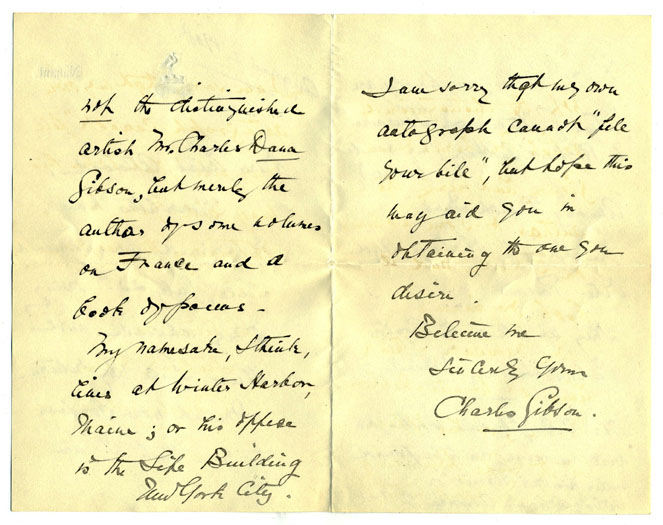 not the distinguished
artist Mr. Charles Dana
Gibson, but merely the
author of some volumes
on France and a
book of poems -
My namesake, I think,
lives at Winter Harbor,
Maine; or his office
is the Life Building
New York City.
I am sorry that my own
autograph cannot "fill
your bill", but hope this
may aid you in
obtaining the one you
desire.
Believe me
Sincerely yours
Charles Gibson.